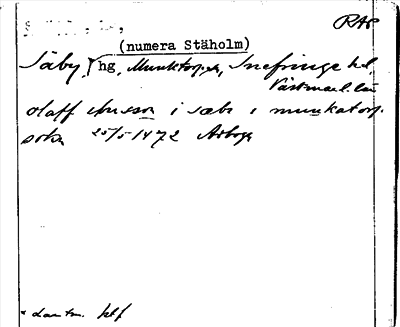 RAP
(numera Stäholm)
Säby, hg, Munktorps, Snefringe hd,
Västmanl. län
olaff i sæby i munkatorp.
sokn 25/5 1472 Arboga